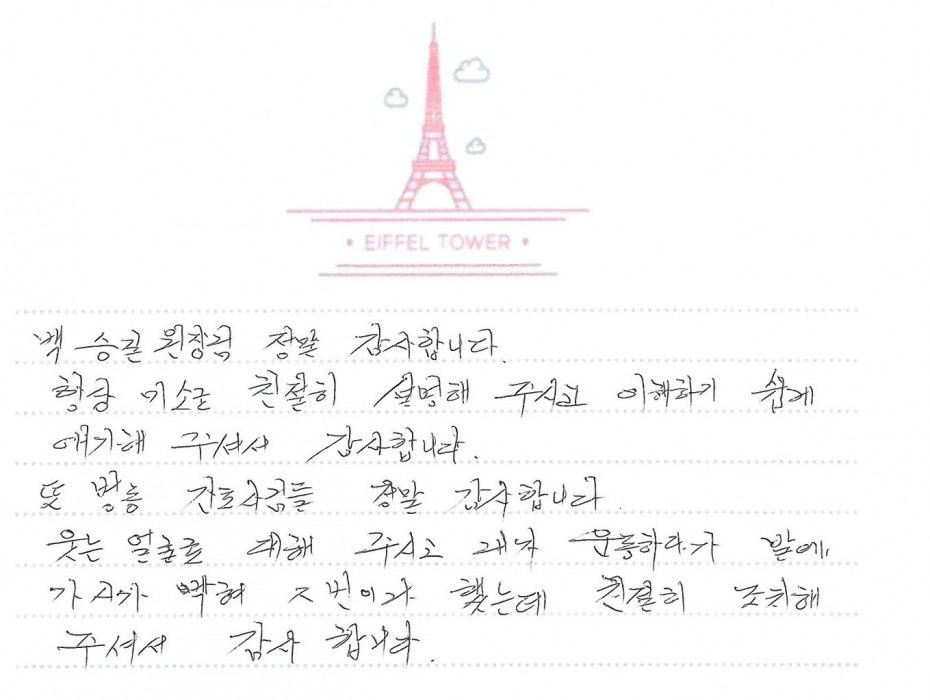 • EIFFEL TOWER •
백 승길 원장님 정말 감사합니다.
항상 미소로 친절히 설명해 주시고 이해하기 쉽게
얘기해 주셔서 감사합니다.
또 병동 간호사님들 정말 감사합니다.
웃는 얼굴로 대해 주시고 제가 운동하다가 발에
가시가 박혀 2번이나 했는데 친절히 조치해
주셔서 감사 합니다.